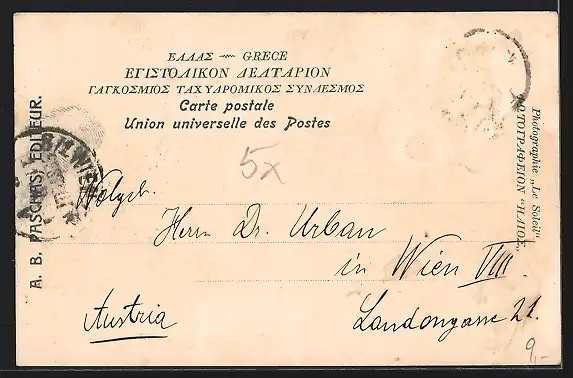 ΕΛΛΑΣ — GRECE
ΕΓΙΣΤΟΛΙΚΟΝ ΔΕΛΤΑΡΙΟΝ
ΓΑΓΚΟΣΜΙΟΣ ΤΑΧΥΔΡΟΜΙΚΟΣ ΣΥΝΔΕΣΜΟΣ
Carte postale
Union universelle des Postes
5x
Wolgeb.
Herrn Dr. Urban
in Wien VIII
Landongasse 21.
Austria
9,-
A. B. PASCHAS, EDITEUR.
Photographie „Le Soleil“
ΦΩΤΟΓΡΑΦΕΙΟΝ "ΗΛΙΟΣ„